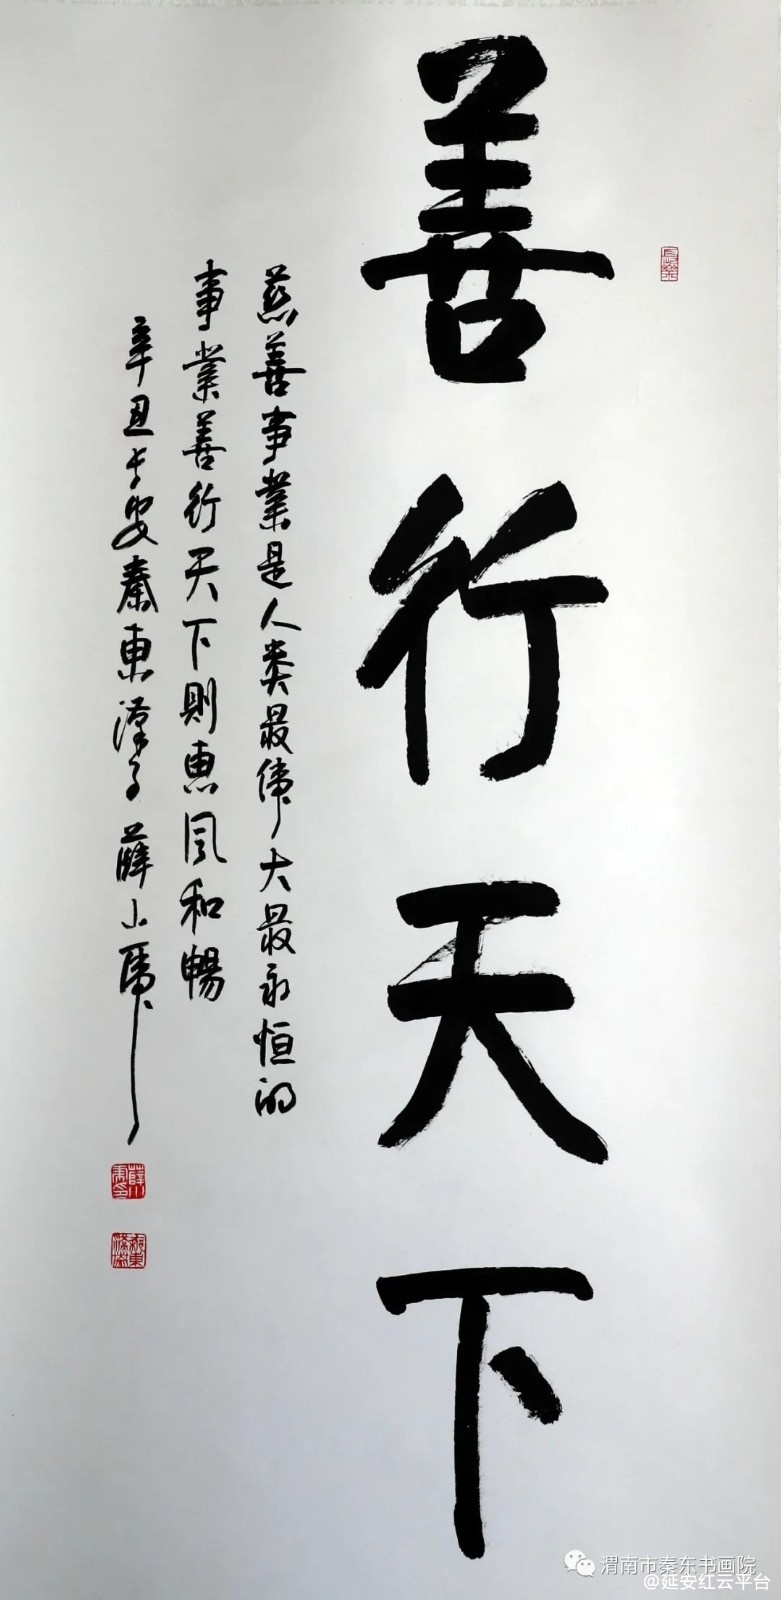 善行天下
慈善事業是人类最偉大最永恒的
事業善行天下則惠風和暢
辛丑長安秦東漢子薛小
渭南市秦东书画院
@延安红云平台